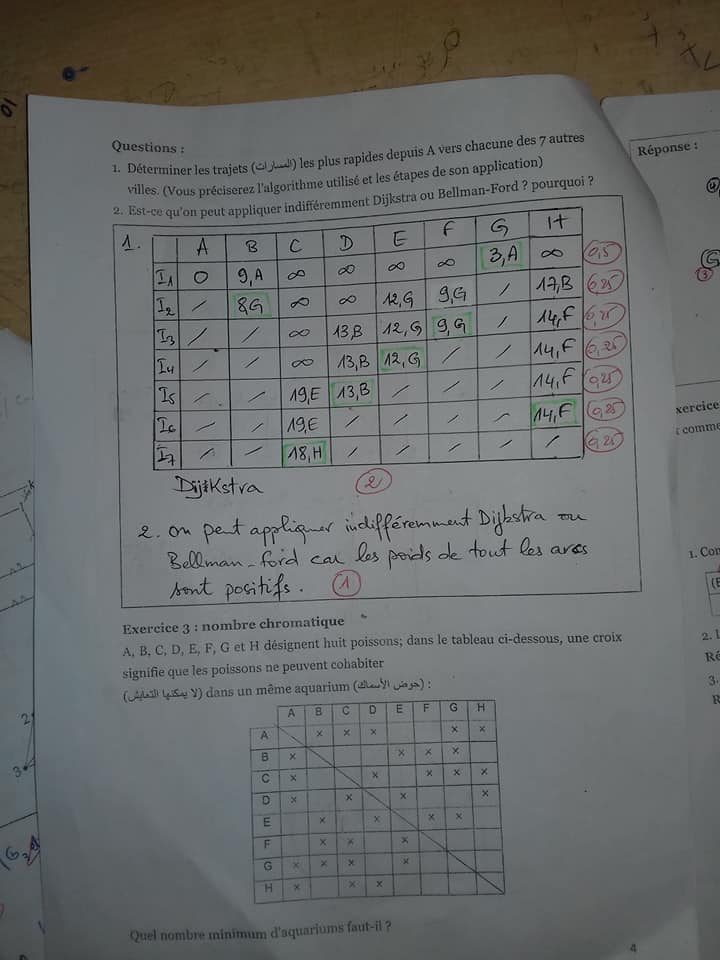 Questions :
1. Déterminer les trajets (المسارات) les plus rapides depuis A vers chacune des 7 autres
villes. (Vous préciserez l'algorithme utilisé et les étapes de son application)
2. Est-ce qu'on peut appliquer indifféremment Dijkstra ou Bellman-Ford ? pourquoi ?
Réponse :
1. A B C D E F G H
I1 0 9,A ∞ ∞ ∞ ∞ 3,A ∞ 0,5
I2 / 8,G ∞ ∞ 12,G 9,G / 17,B 0,25
I3 / / ∞ 13,B 12,G 9,G / 14,F 0,25
I4 / / ∞ 13,B 12,G / / 14,F 0,25
I5 / / 19,E 13,B / / / 14,F 0,25
I6 / / 19,E / / / / 14,F 0,25
I7 / / 18,H / / / / / 0,25
Dijkstra 2
2. on peut appliquer indifféremment Dijkstra ou
Bellman-ford car les poids de tout les arcs
sont positifs. 1
Exercice 3 : nombre chromatique
A, B, C, D, E, F, G et H désignent huit poissons; dans le tableau ci-dessous, une croix
signifie que les poissons ne peuvent cohabiter
(لا يمكنها التعايش) dans un même aquarium (حوض الأسماك) :
A B C D E F G H
A x x x x x
B x x x x
C x x x x x
D x x x x
E x x x x
F x x x
G x x x x
H x x x
Quel nombre minimum d'aquariums faut-il ?
4